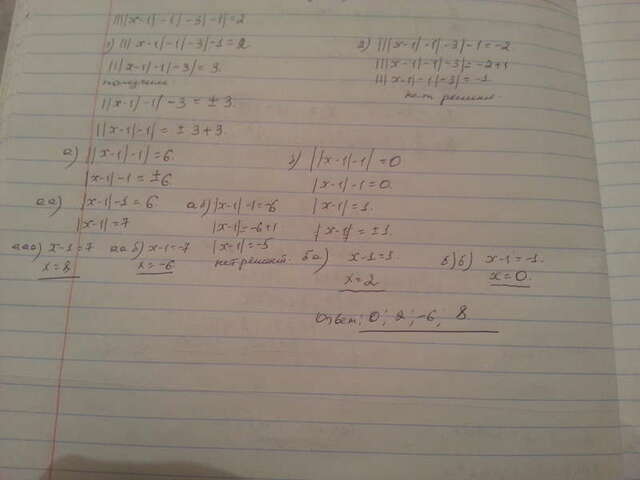 ||||x-1|-1|-3|-1|=2
1) |||x-1|-1|-3|-1=2
|||x-1|-1|-3|=3.
получим
||x-1|-1|-3=±3.
||x-1|-1|=±3+3.
2) |||x-1|-1|-3|-1=-2
|||x-1|-1|-3|=-2+1
|||x-1|-1|-3|=-1
нет решения.
а) ||x-1|-1|=6.
|x-1|-1=±6.
аа) |x-1|-1=6.
|x-1|=7
аб) |x-1|-1=-6
|x-1|=-6+1
|x-1|=-5
нет решений.
ааа) x-1=7
x=8
ааб) x-1=-7
x=-6
б) ||x-1|-1|=0
|x-1|-1=0.
|x-1|=1.
|x-1|=±1.
ба) x-1=1.
x=2
бб) x-1=-1.
x=0.
Ответ: 0; 2; -6; 8